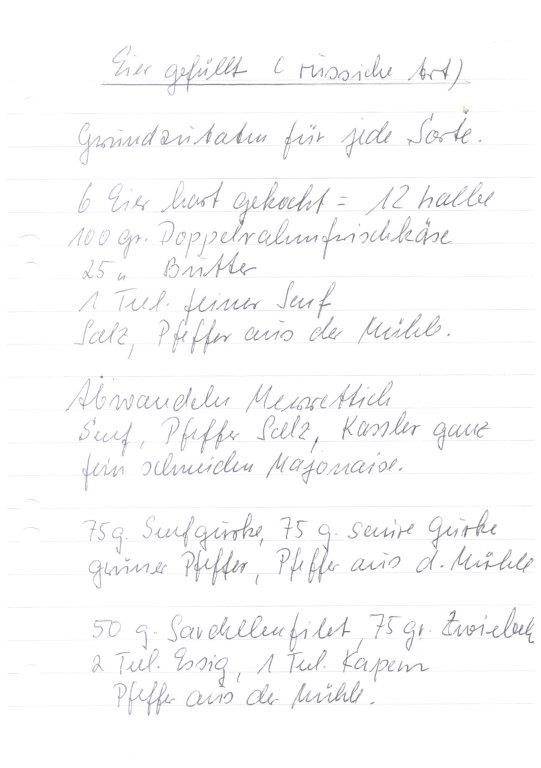 Eier gefüllt (rüssiche Art)
Grundzutaten für jede Sorte.
6 Eier hart gekocht = 12 halbe
100 gr. Doppelrahmfrischkäse
25 " Butter
1 Teel. feiner Senf
Salz, Pfeffer aus der Mühle.
Abwandeln Meerrettich
Senf, Pfeffer Salz, Kassler ganz
fein schneiden Majonaise.
75 g. Senfgurke, 75 g. saure Gurke
grüner Pfeffer, Pfeffer aus d. Mühle
50 g. Sardellenfilet, 75 gr.
2 Teel. Essig, 1 Teel. Kapern
Pfeffer aus der Mühle.